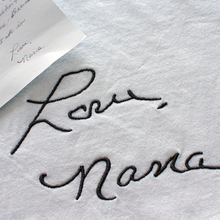 Love,
Nana
Love,
Nana